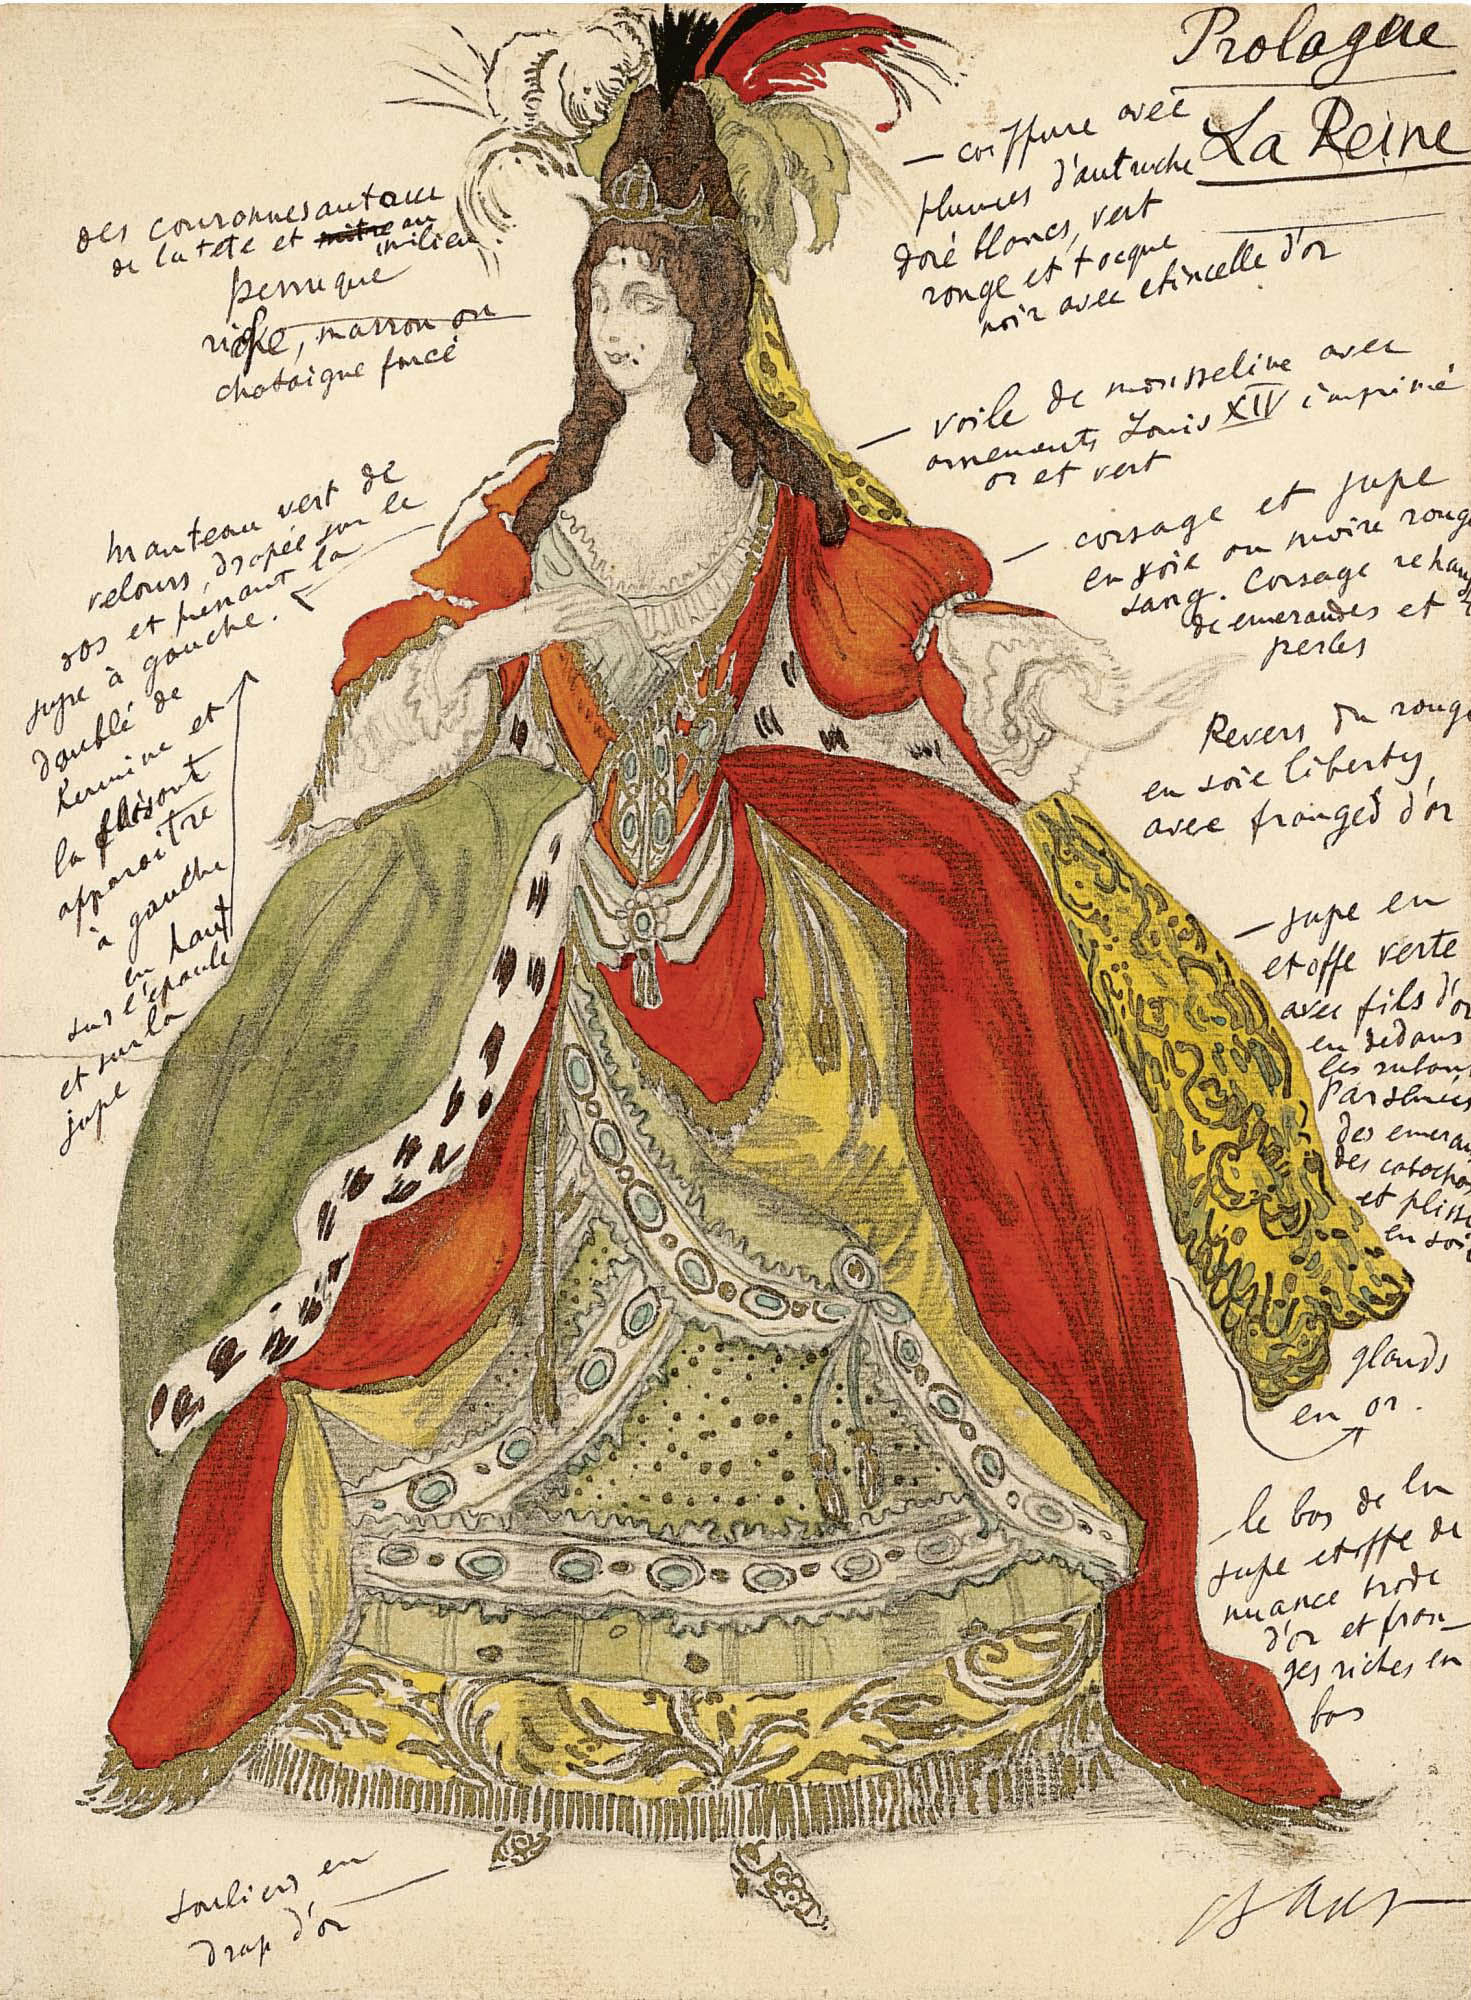 Prologue
La Reine
des couronnes autour
de la tete et mitre au
milieu
perruque
riche, marron ou
chataigne foncé
manteau vert de
velours, drapée sur le
dos et prenant la
jupe à gauche.
doublé de
hermine et
la faisant
apparaitre
à gauche
en haut
sur l'epaule
et sur la
jupe
souliers en
drap d'or
— coiffure avec
plumes d'autruche
doré blancs, vert
rouge et tocque
noir avec etincelle d'or
— voile de mousseline avec
ornements Louis XIV imprimé
or et vert
— corsage et jupe
en soie ou moire rouge
sang. Corsage
de emeraudes et
perles
Revers du rouge
en soie liberty
avec franges d'or
— jupe en
etoffe verte
avec fils d'or
en dedans
les
des
des
et
en
glands
en or.
— le bas de la
jupe etoffe de
nuance
d'or et fran-
ges riches en
bas
Bakst